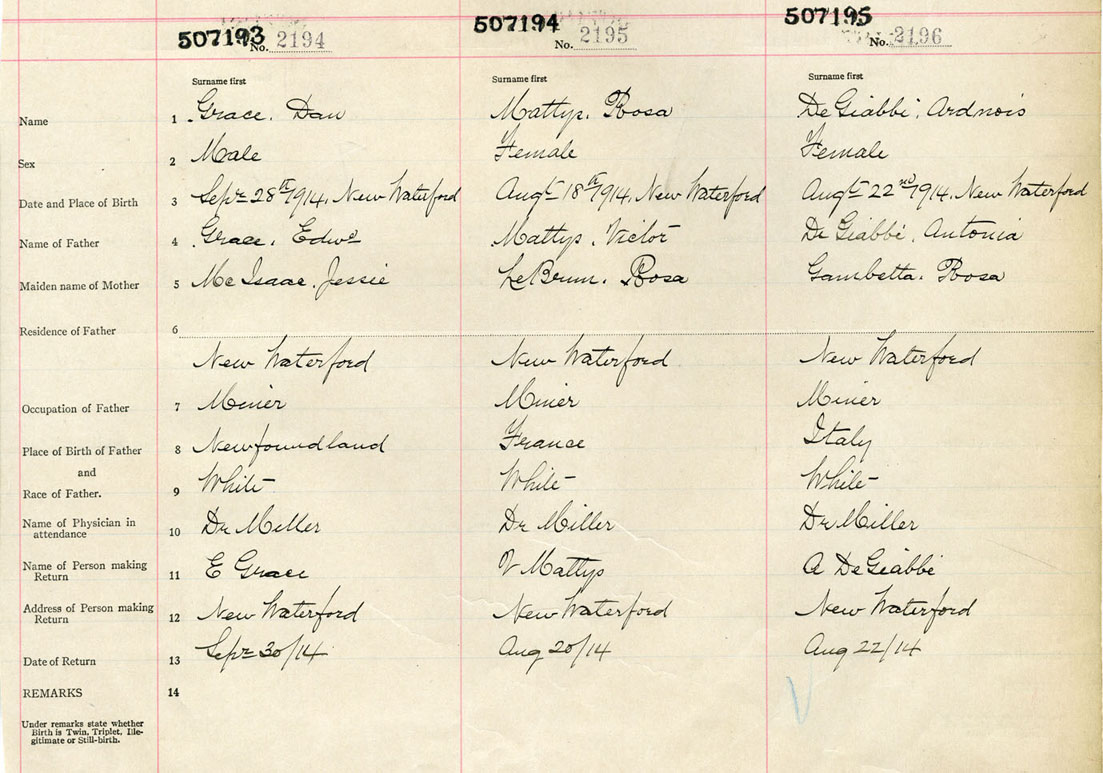 507193 No. 2194 507194 No. 2195 507195 No. 2196
Surname first Surname first Surname first
Name 1 Grace, Dan Mattys, Rosa De Giabbi, Ardnois
Sex 2 Male Female Female
Date and Place of Birth 3 Sepr 28th 1914, New Waterford Augt 18th 1914, New Waterford Augt 22nd 1914, New Waterford
Name of Father 4 Grace, Edwd Mattys, Victor De Giabbi, Antonia
Maiden name of Mother 5 McIsaac, Jessie LeBrun, Rosa Gambetta, Rosa
Residence of Father 6
New Waterford New Waterford New Waterford
Occupation of Father 7 Miner Miner Miner
Place of Birth of Father 8 Newfoundland France Italy
and
Race of Father. 9 White White White
Name of Physician in
attendance 10 Dr Miller Dr Miller Dr Miller
Name of Person making
Return 11 E Grace V Mattys A De Giabbi
Address of Person making
Return 12 New Waterford New Waterford New Waterford
Date of Return 13 Sepr 30/14 Aug 20/14 Aug 22/14
REMARKS 14
Under remarks state whether
Birth is Twin, Triplet, Ille-
gitimate or Still-birth.